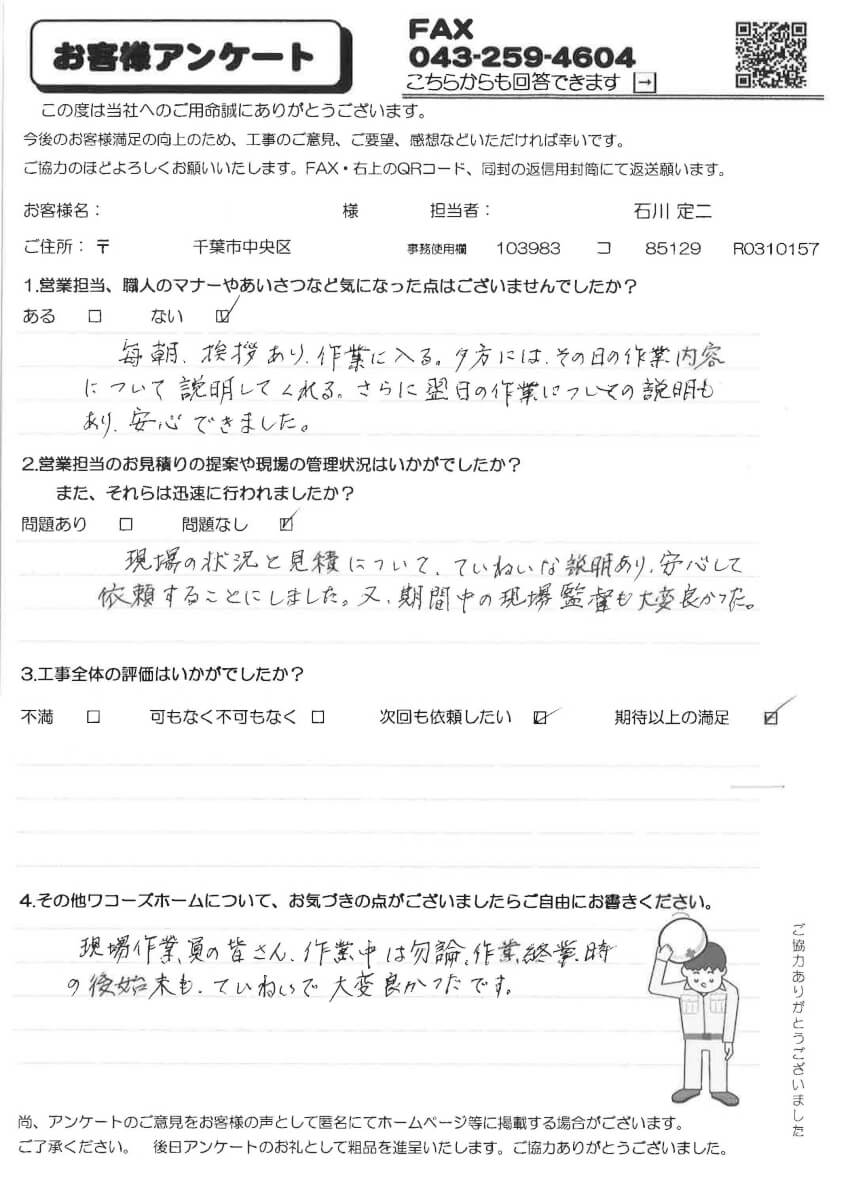 お客様アンケート
FAX
043-259-4604
こちらからも回答できます →
この度は当社へのご用命誠にありがとうございます。
今後のお客様満足の向上のため、工事のご意見、ご要望、感想などいただければ幸いです。
ご協力のほどよろしくお願いいたします。FAX・右上のQRコード、同封の返信用封筒にて返送願います。
お客様名： 様 担当者： 石川 定二
ご住所：〒 千葉市中央区 事務使用欄 103983 コ 85129 R0310157
1.営業担当、職人のマナーやあいさつなど気になった点はございませんでしたか？
ある □ ない ☑
毎朝、挨拶あり、作業に入る。夕方には、その日の作業内容
について説明してくれる。さらに翌日の作業についての説明も
あり、安心できました。
2.営業担当のお見積りの提案や現場の管理状況はいかがでしたか？
また、それらは迅速に行われましたか？
問題あり □ 問題なし ☑
現場の状況と見積について、ていねいな説明あり、安心して
依頼することにしました。又、期間中の現場監督も大変良かった。
3.工事全体の評価はいかがでしたか？
不満 □ 可もなく不可もなく □ 次回も依頼したい ☑ 期待以上の満足 ☑
4.その他ワコーズホームについて、お気づきの点がございましたらご自由にお書きください。
現場作業員の皆さん、作業中は勿論、作業終業時
の後始末も、ていねいで大変良かったです。
ご協力ありがとうございました
尚、アンケートのご意見をお客様の声として匿名にてホームページ等に掲載する場合がございます。
ご了承ください。 後日アンケートのお礼として粗品を進呈いたします。ご協力ありがとうございました。